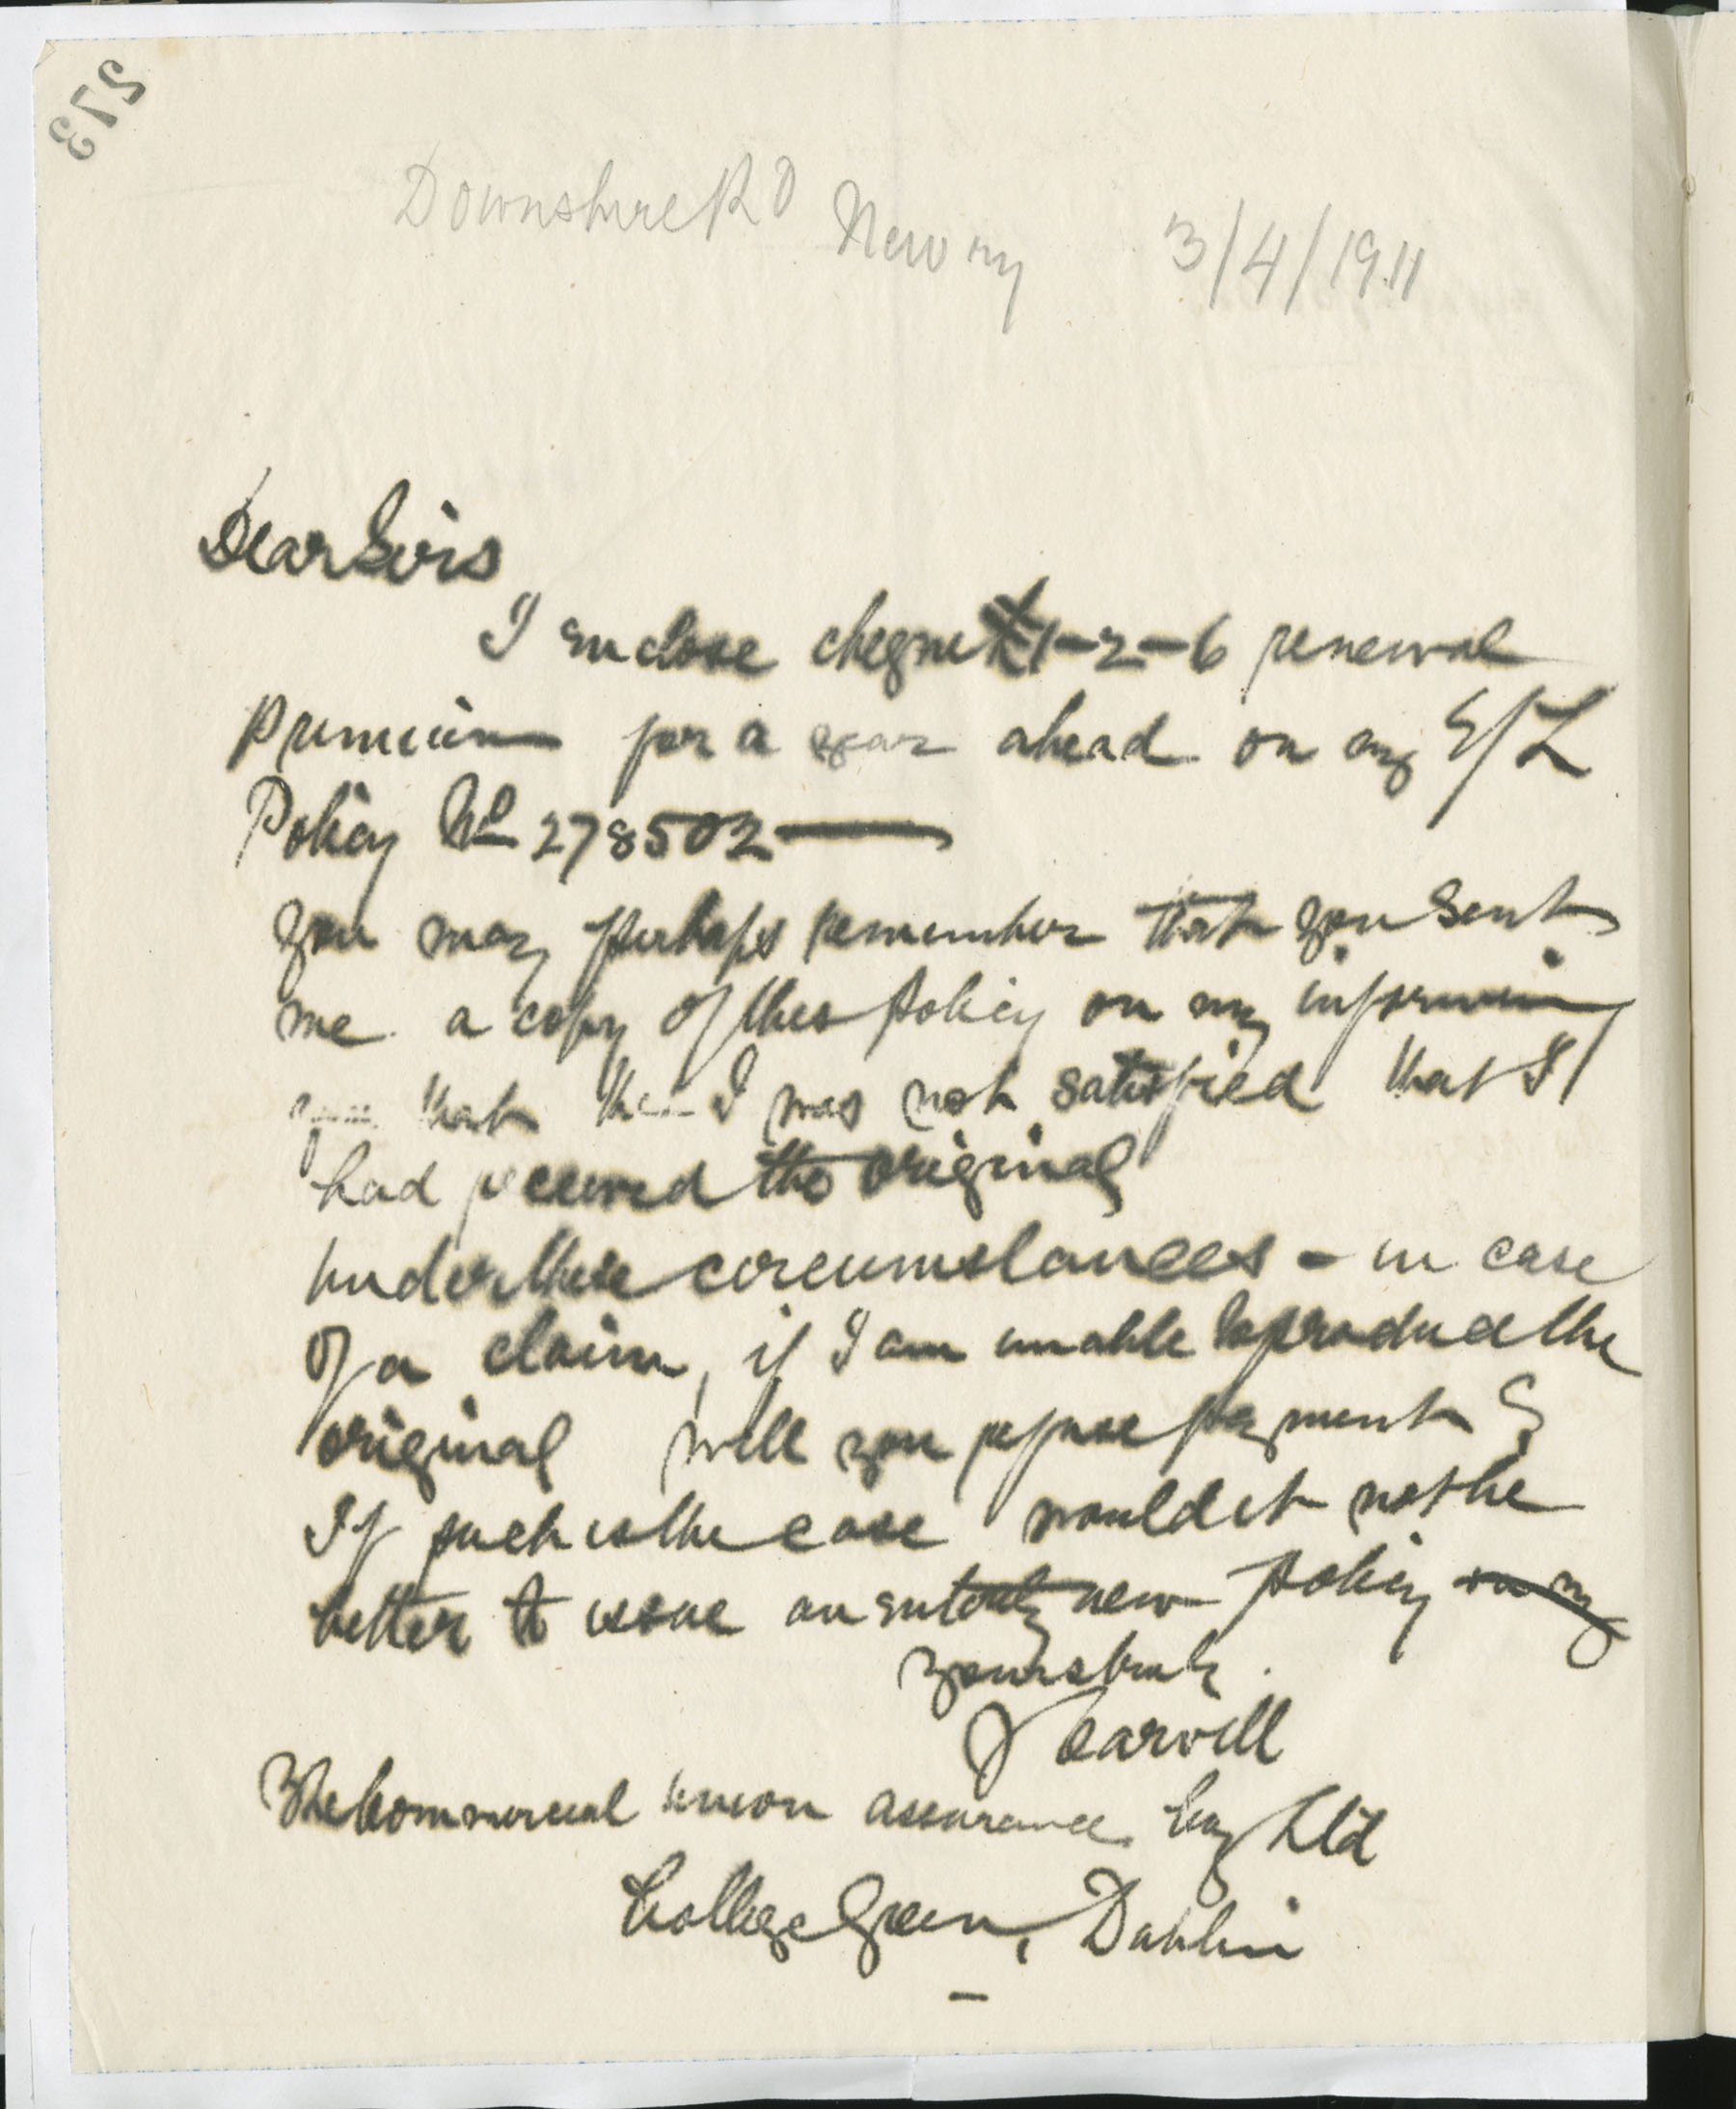 273
Downshire Rd Newry 3/4/1911
Dear Sirs
I enclose cheque £1-2-6 renewal
Premium for a year ahead on my E/L
Policy No 278502
you may perhaps remember that you sent
me a copy of this policy on my informing
you that I was not satisfied that I
had received the original
under these circumstances - in case
of a claim, if I am unable to produce the
original will you refuse payment?
If such is the case would it not be
better to issue an entirely new policy on my
yours truly
J Carvill
The Commercial Union assurance Coy Ltd
College Green, Dublin